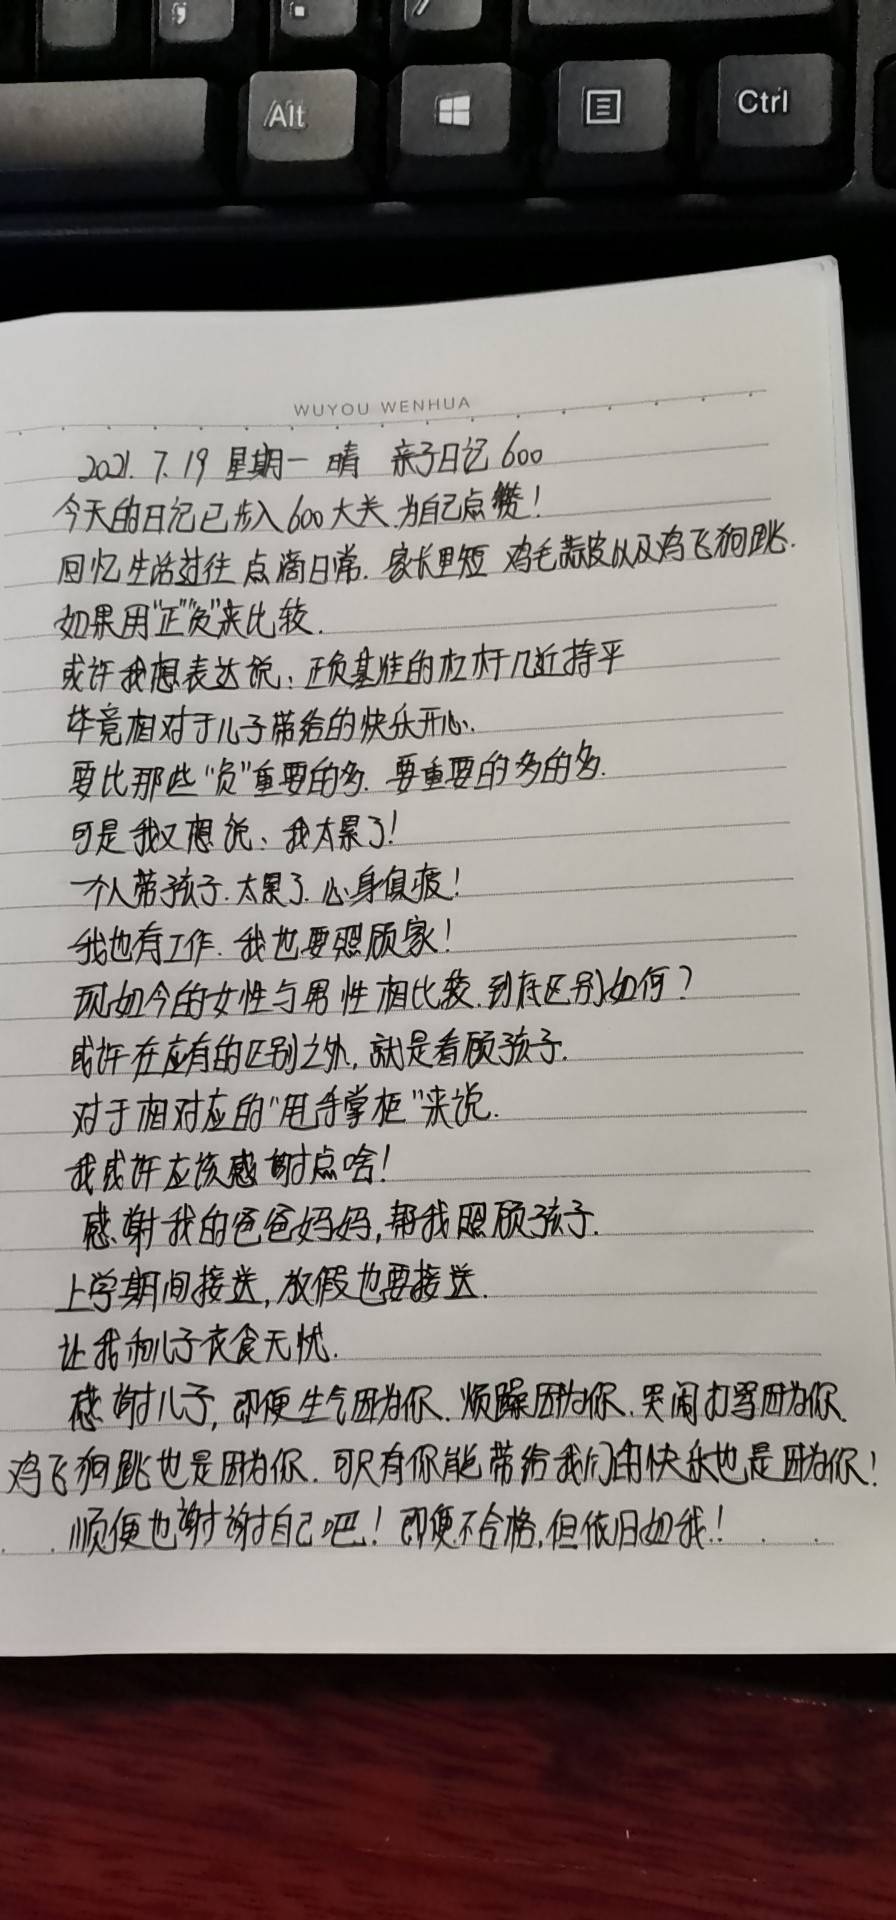 ;
Alt
Ctrl
WUYOU WENHUA
2021.7.19 星期一 晴 亲子日记600
今天的日记已步入600大关.为自己点赞!
回忆生活过往 点滴日常.家长里短 鸡毛蒜皮以及鸡飞狗跳.
如果用"正""负"来比较.
或许我想表达说:正负基准的杠杆几近持平
毕竟相对于儿子带给的快乐开心.
要比那些"负"重要的多.要重要的多的多.
可是我又想说、我太累了!
一个人带孩子.太累了.心身俱疲!
我也有工作.我也要照顾家!
现如今的女性与男性相比较.到底区别如何?
或许在应有的区别之外,就是看顾孩子.
对于相对应的"甩手掌柜"来说.
我或许应该感谢点啥!
感谢我的爸爸妈妈,帮我照顾孩子.
上学期间接送,放假也要接送.
让我和儿子衣食无忧.
感谢儿子,即便生气因为你.烦躁因为你.哭闹打骂因为你.
鸡飞狗跳也是因为你.可只有你能带给我们的快乐也是因为你!
顺便也谢谢自己吧!即便不合格,但依旧如我!